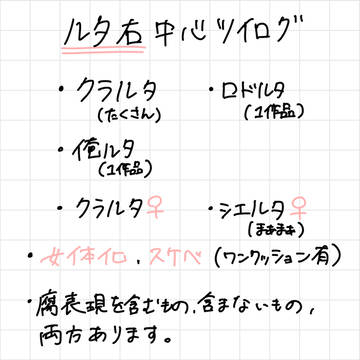 ルタ右中心ツイログ
・クラルタ
(たくさん)
・ロドルタ
(1作品)
・俺ルタ
(1作品)
・クラルタ♀
・シエルタ♀
(まぁまぁ)
・女体化、スケベ(ワンクッション有)
・腐表現を含むもの、含まないもの、
両方あります。